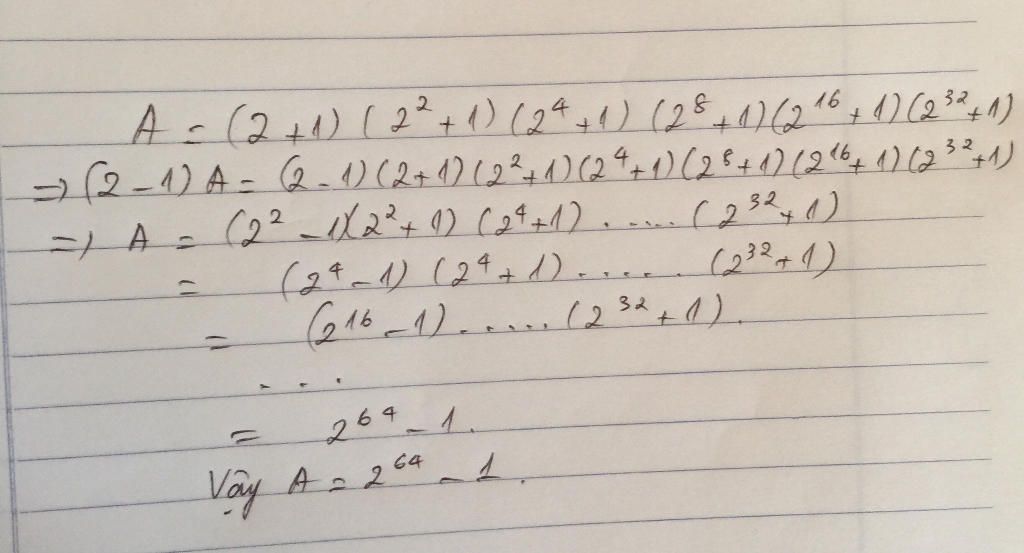 A = (2+1)(2²+1)(2⁴+1)(2⁸+1)(2¹⁶+1)(2³²+1)
⇒ (2-1)A = (2-1)(2+1)(2²+1)(2⁴+1)(2⁸+1)(2¹⁶+1)(2³²+1)
⇒ A = (2²-1)(2²+1)(2⁴+1).....(2³²+1)
= (2⁴-1)(2⁴+1).....(2³²+1)
= (2¹⁶-1).....(2³²+1).
...
= 2⁶⁴-1.
Vậy A = 2⁶⁴-1.